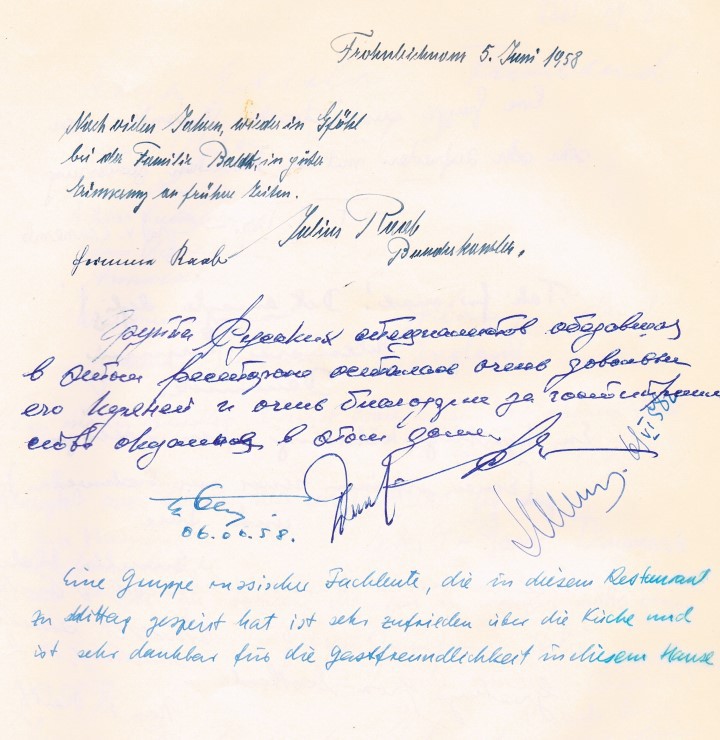 Frohnleichnam 5. Juni 1958
Nach vielen Jahren, wieder in Gföhl
bei der Familie in guter
Erinnerung an frühere Zeiten.
Julius Raab
Hermine Raab
Bundeskanzler.
Группа Русских специалистов обедавшая
в этом ресторане осталась очень довольны
его кухней и очень благодарны за гостеприим
ство оказанное в этом доме.
6/VI 58
06.06.58.
Eine Gruppe russischer Fachleute, die in diesem Restaurant
zu Mittag gespeist hat ist sehr zufrieden über die Küche und
ist sehr dankbar für die Gastfreundlichkeit in diesem Hause